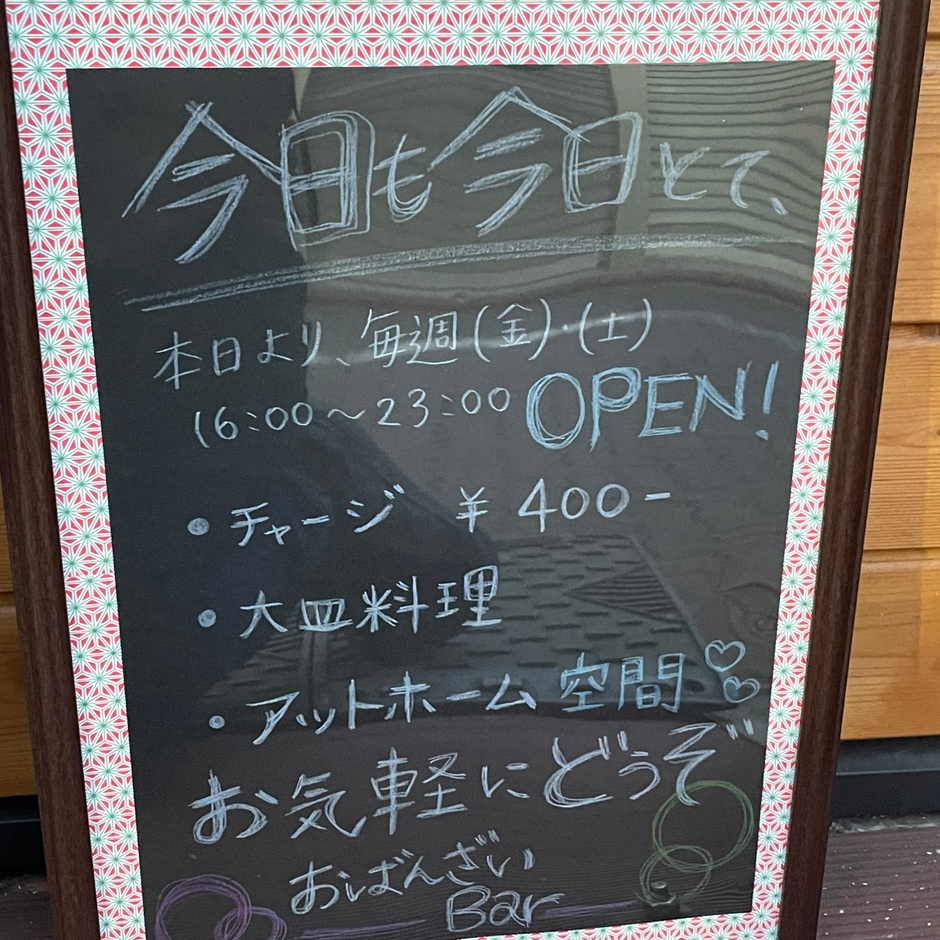 今日も今日とて、
本日より、毎週(金)・(土)
16:00～23:00 OPEN!
・チャージ ¥400-
・大皿料理
・アットホーム空間♡♡
お気軽にどうぞ
おばんざい
Bar